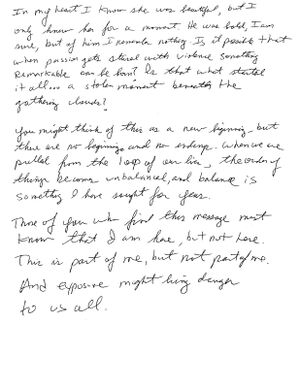 In my heart I know she was beautiful, but I
only knew her for a moment. He was bold, I am
sure, but of him I remember nothing. Is it possible that
when passion gets stired with violence something
remarkable can be born? Is that what started
it all... a stolen moment beneath the
gathering clouds?
You might think of this as a new beginning, but
there are no beginnings and no endings. When we are
pulled from the loop of our lives, the order of
things becomes unbalanced, and balance is
something I have sought for years.
Those of you who find this message must
know that I am here, but not here.
This is part of me, but not part of me.
And exposure might bring danger
to us all.